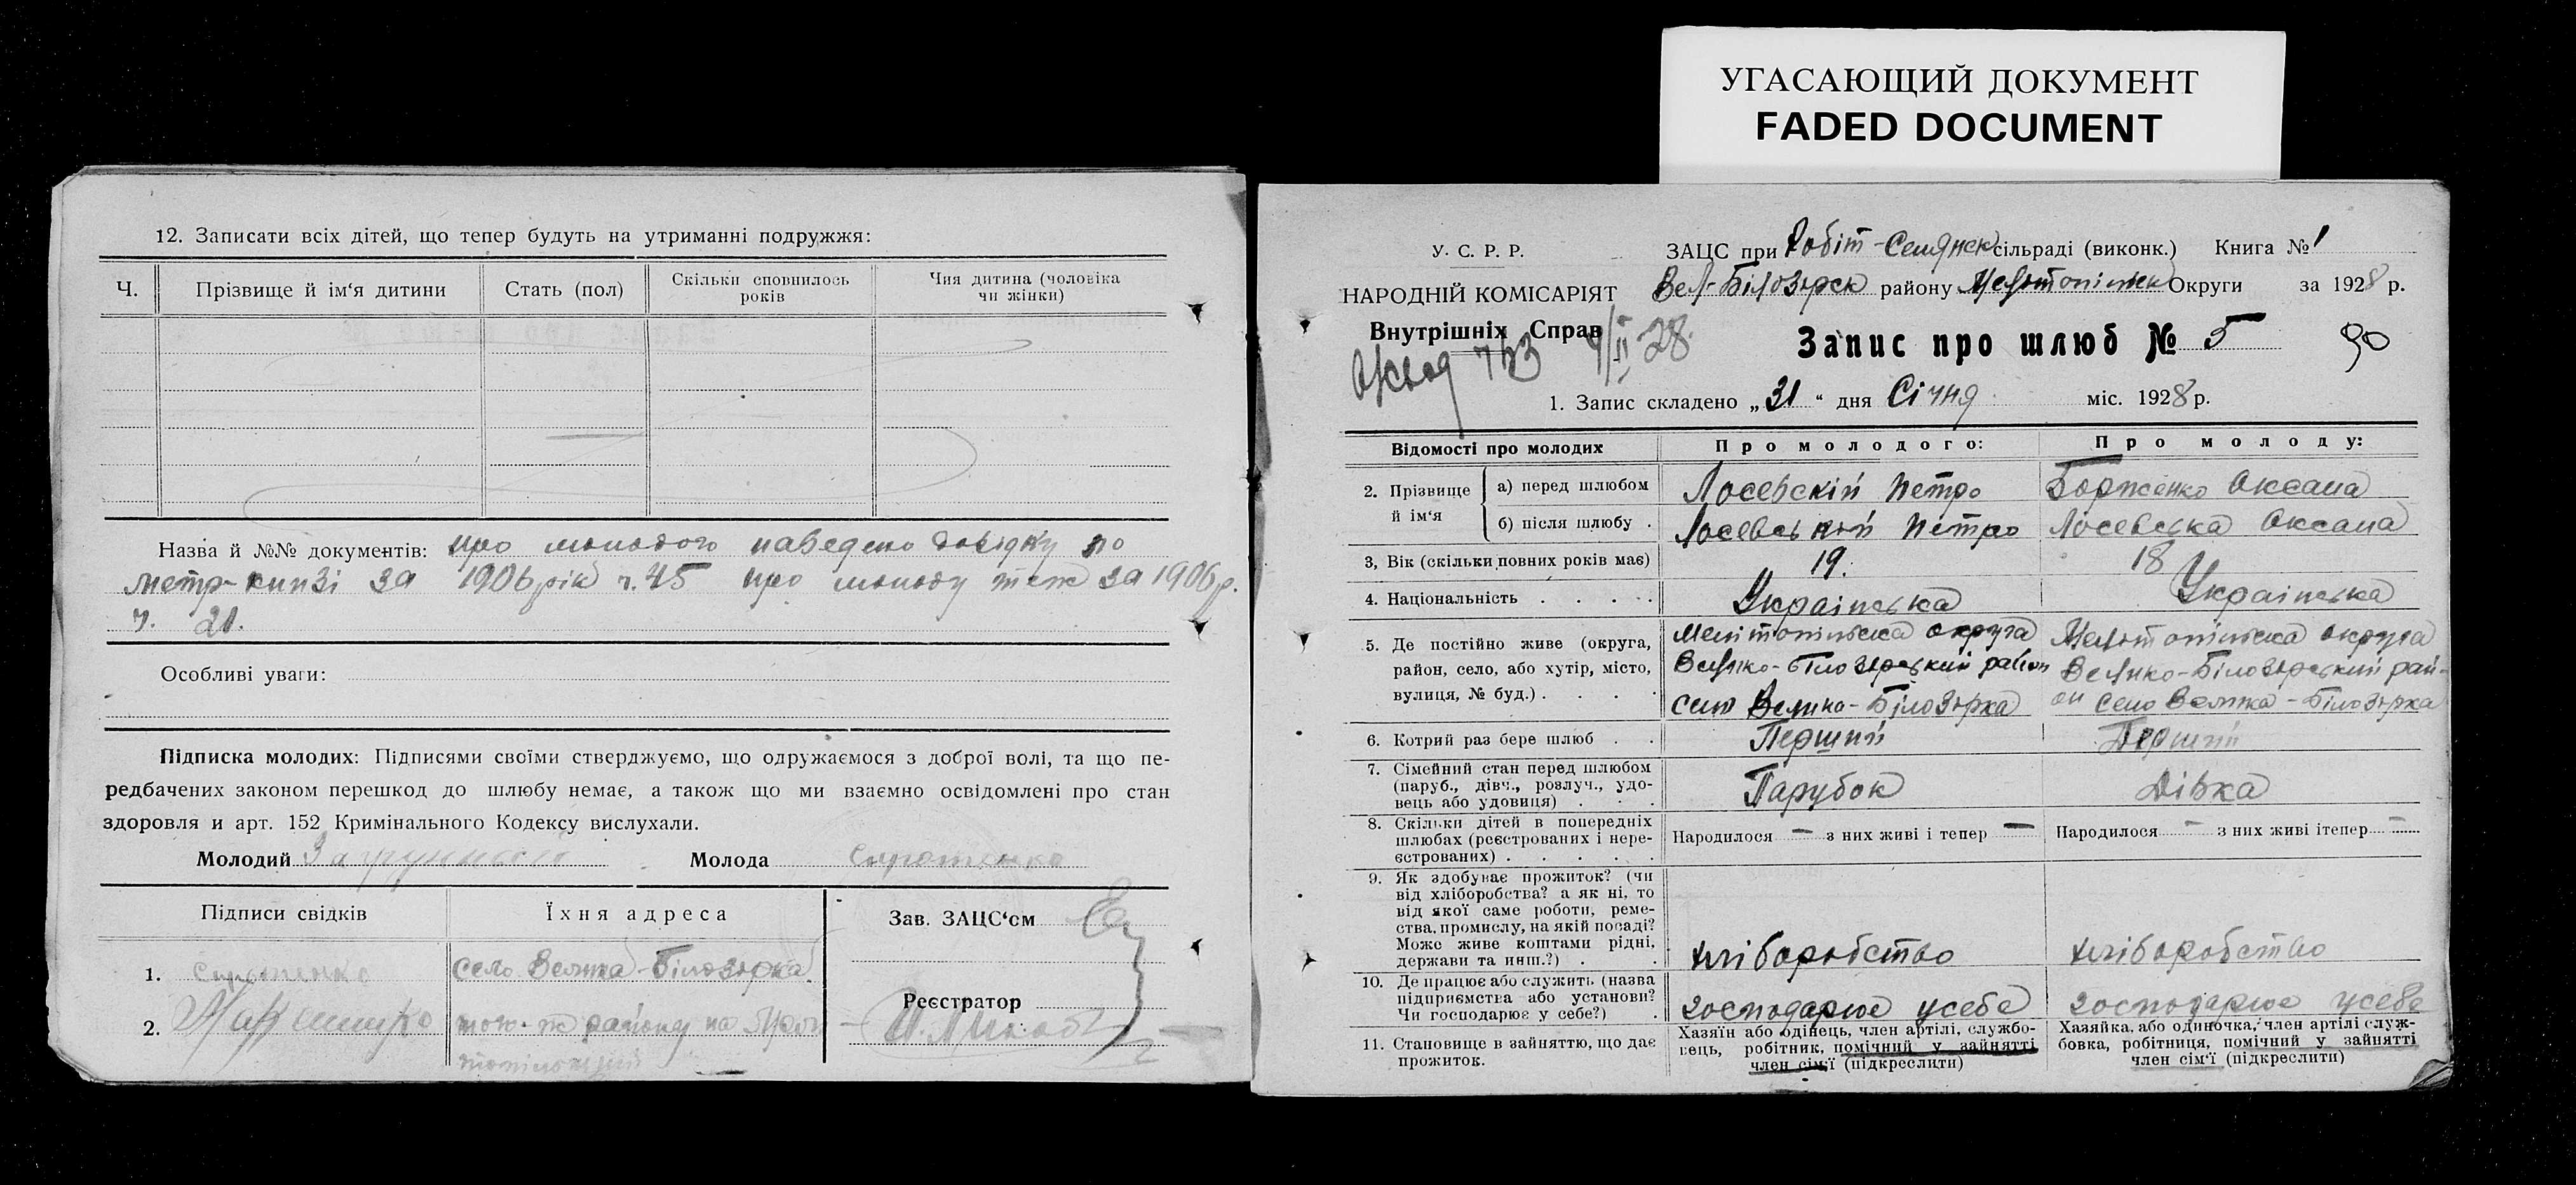 УГАСАЮЩИЙ ДОКУМЕНТ
FADED DOCUMENT
12. Записати всіх дітей, що тепер будуть на утриманні подружжя:
Ч. Прізвище й ім‘я дитини Стать (пол) Скільки сповнилось років Чия дитина (чоловіка чи жінки)
Назва й №№ документів: про молодого наведено довідку по
метр-книзі за 1906 рік ч. 45 про молоду теж за 1906 р.
ч. 21.
Особливі уваги:
Підписка молодих: Підписями своїми стверджуємо, що одружаємося з доброї волі, та що пе-
редбачених законом перешкод до шлюбу немає, а також що ми взаємно освідомлені про стан
здоровля и арт. 152 Кримінального Кодексу вислухали.
Молодий Молода Сиротенко
Підписи свідків Їхня адреса Зав. ЗАЦС‘ом
1. Сиротенко село Велика-Білозірка
Реєстратор
2. того-ж району на
У. С. Р. Р. ЗАЦС при Робіт-Селянск сільраді (виконк.) Книга № 1
НАРОДНІЙ КОМІСАРІЯТ Вел-Білозірск району Мелітопільск Округи за 1928 р.
Внутрішніх Справ 28
Запис про шлюб № 5 90
1. Запис складено „31“ дня Січня міс. 1928 р.
Відомості про молодих Про молодого: Про молоду:
2. Прізвище й ім‘я
а) перед шлюбом Лосевскій Петро Борженко Оксана
б) після шлюбу . Лосевський Петро Лосевська Оксана
3, Вік (скільки повних років має) 19. 18
4. Національність . . . . . Українська Українська
5. Де постійно живе (округа, Мелітопільска округа Мелітопільска округа
район, село, або хутір, місто, Велико-Білозірський район Велико-Білозірський рай-
вулиця, № буд.) . . . . село Велика-Білозірка он село Велика-Білозірка
6. Котрий раз бере шлюб . . Перший Перший
7. Сімейний стан перед шлюбом
(паруб., дівч., розлуч., удо- Парубок Дівка
вець або удовиця) . . .
8. Скільки дітей в попередніх
шлюбах (реєстрованих і нере- Народилося — з них живі і тепер — Народилося — з них живі ітепер —
єстрованих) . . . . .
9. Як здобуває прожиток? (чи
від хліборобства? а як ні, то
від якої саме роботи, реме-
ства, промислу, на якій посаді?
Може живе коштами рідні, хліборобство хліборобство
держави та инш.?) . .
10. Де працює або служить (назва
підприємства або установи? господарює усебе господарює усебе
Чи господарює у себе?) .
11. Становище в зайняттю, що дає
прожиток.
Хазяїн або одінець, член артілі, службо-
вець, робітник, помічний у зайнятті
член сім‘ї (підкреслити)
Хазяйка, або одиночка, член артілі служ-
бовка, робітниця, помічний у зайнятті
член сім‘ї (підкреслити)